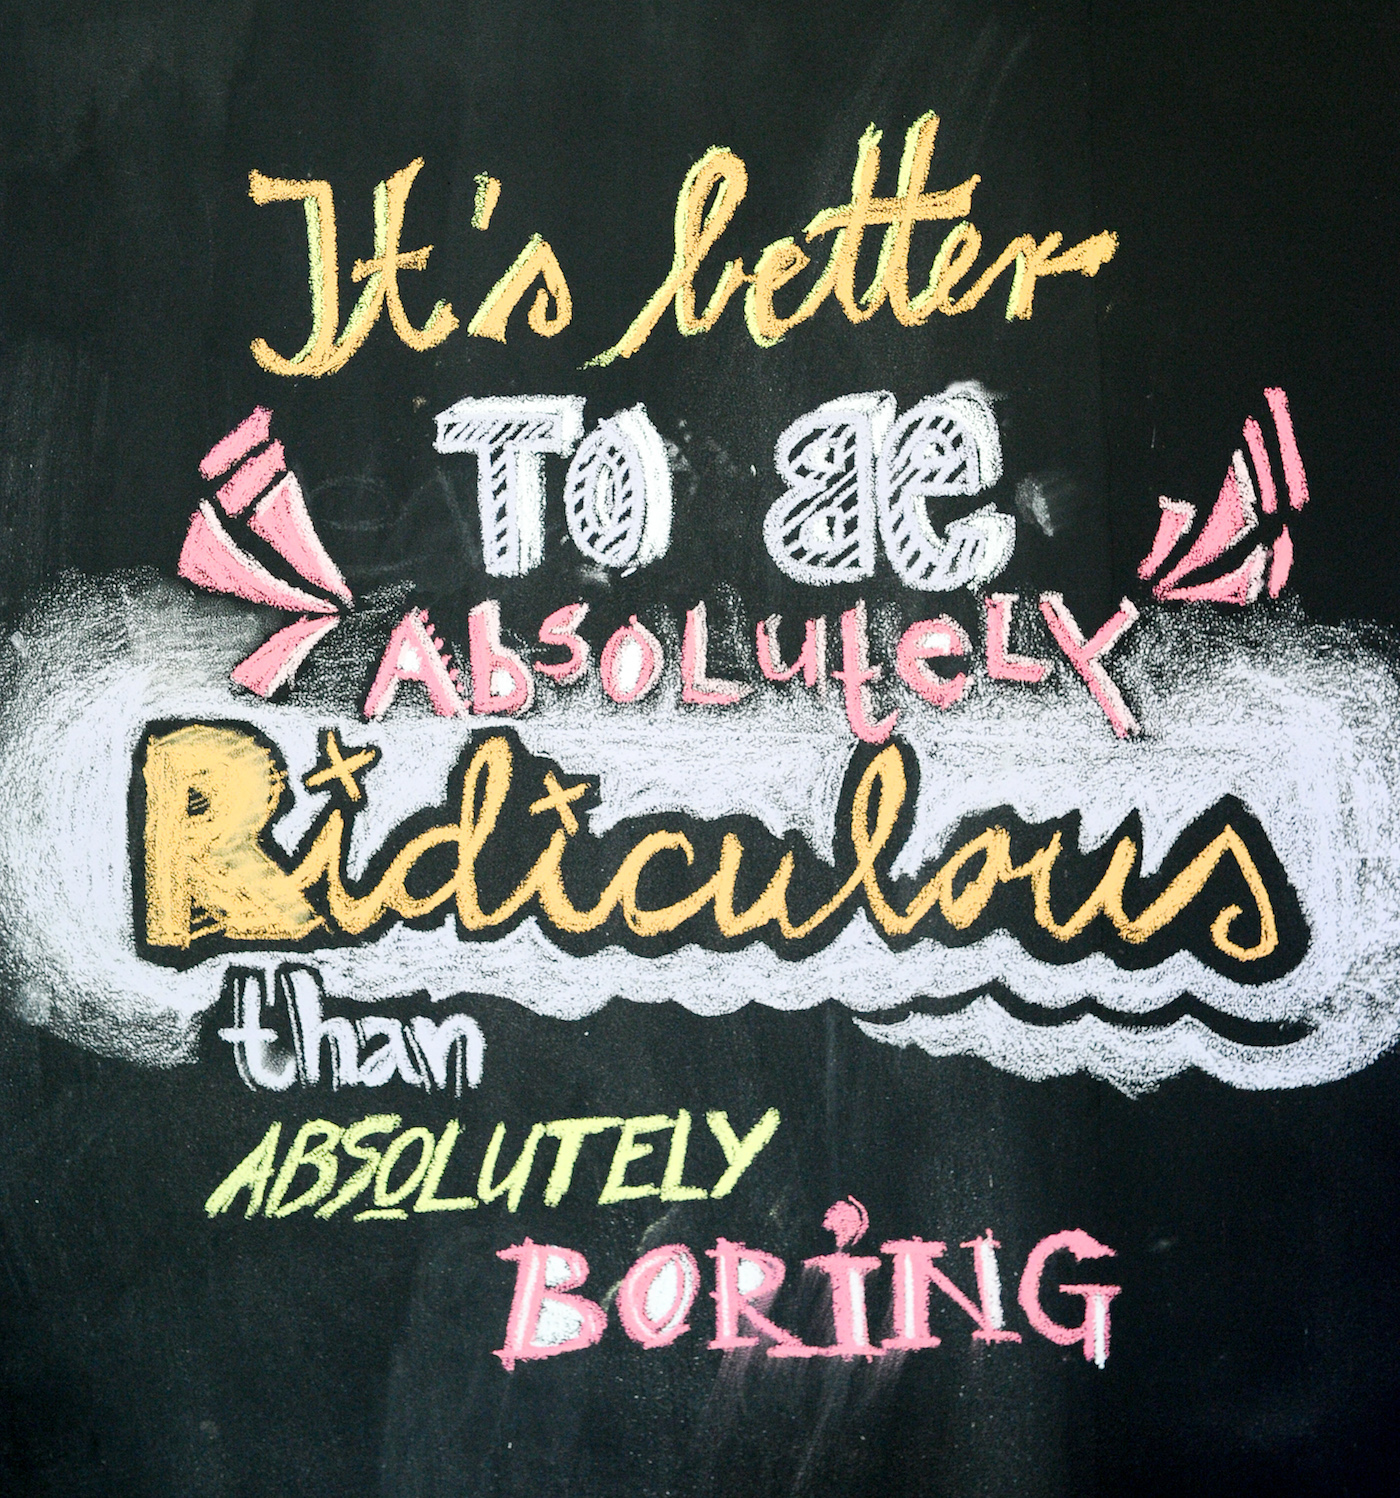 It's better
TO BE
AbsoLuteLY
Ridiculous
than
ABSOLUTELY
BORiNG